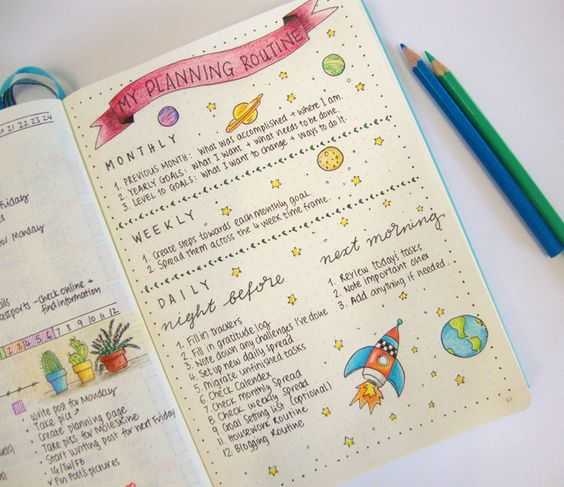 21 22 23 24
Friday
Monday
passports - check online +
find information
2 3 4 5 6 7 8 9 10 11 12
Write post for Monday
Take pic
Create planning page
Take pics for Moleskine
Start writing post for next Friday
IG/TW/FB
Pin Post's pictures
MY PLANNING ROUTINE
MONTHLY
1. PREVIOUS MONTH: What was accomplished + where I am
2. YEARLY GOALS: what I want + what needs to be done.
3. LEVEL 10 GOALS: what I want to change + ways to do it.
WEEKLY
1. Create steps towards each monthly goal
2. Spread them across the 4 week time frame.
DAILY
night before
1. Fill in trackers
2. Fill in gratitude log
3. Note down any challenges I've done
4. Set up new daily spread
5. Migrate unfinished tasks
6. Check Calendex
7. Check monthly spread
8. Check weekly spread
9. Goal Setting List (optional)
11. Housework Routine
12. Blogging Routine
next morning
1. Review today's tasks
2. Note important ones
3. Add anything if needed.